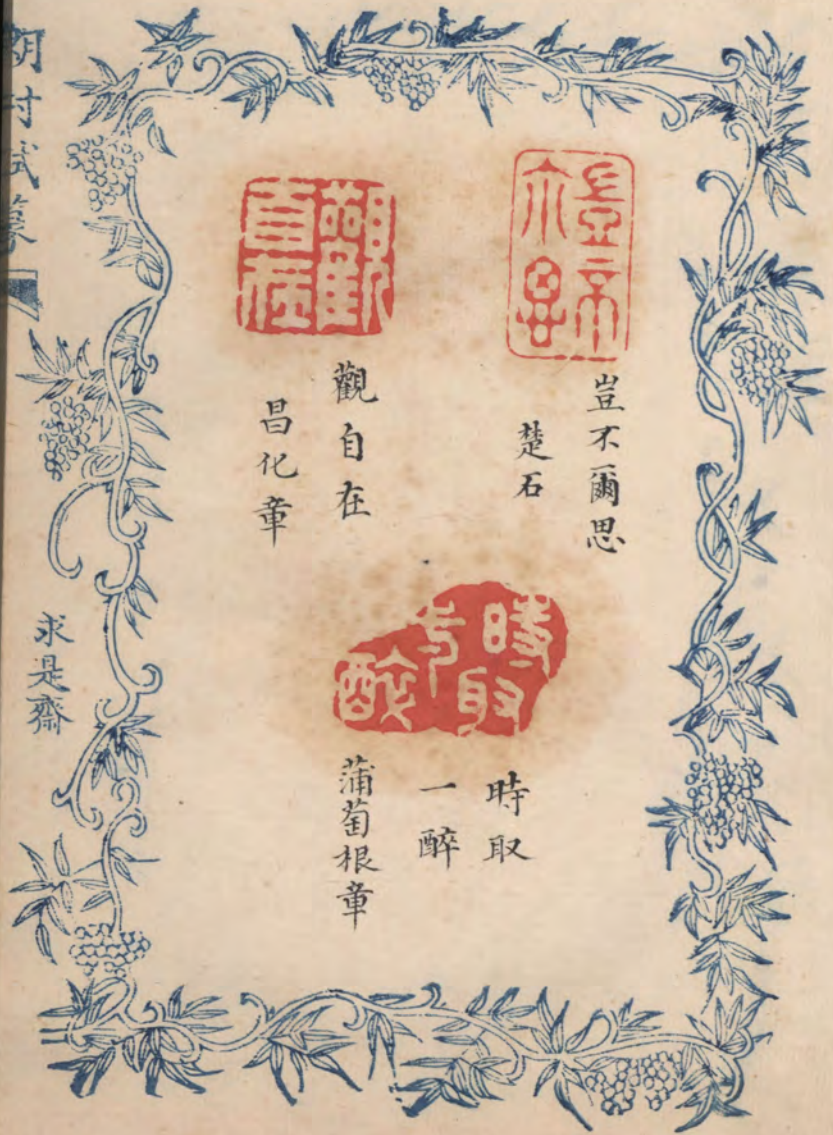 豈不
尔思
豈不爾思
楚石
觀
自在
觀自在
昌化章
時取
一醉
時取
一醉
蒲萄根章
村試篆
求是齋